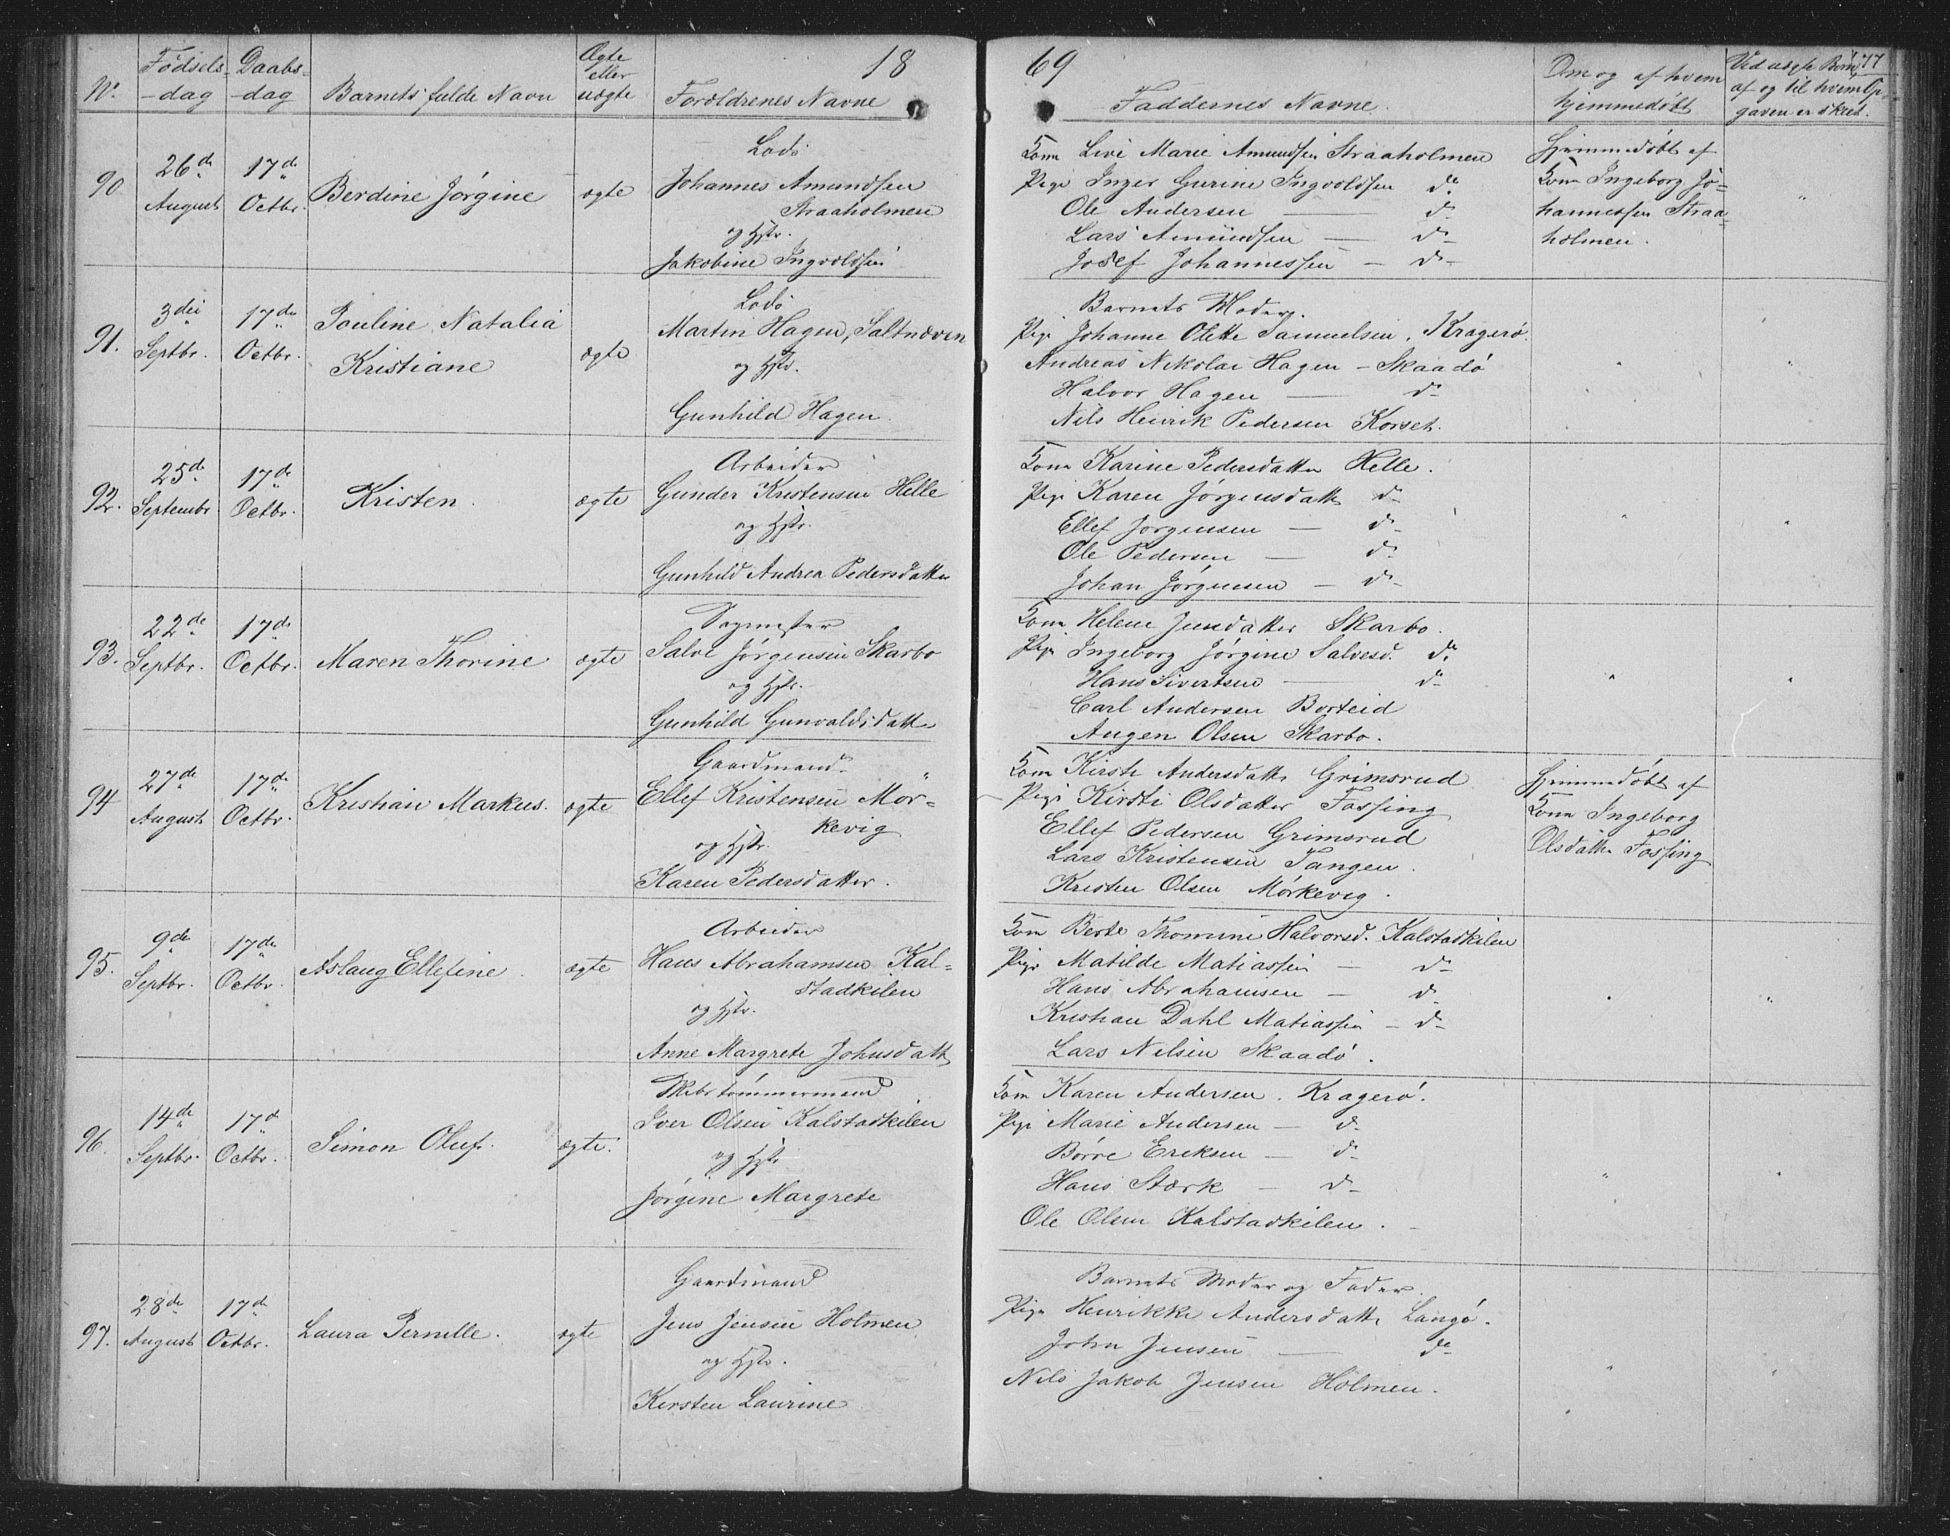 18 69
177
No.
Fødsels-
-dag
Daabs-
-dag
Barnets fulde Navn
Ægte
eller
uægte
Forældrenes Navne
Faddernes Navne.
Om og af hvem
hjemmedøbt
Ved uægte Børn,
af og til hvem Op-
gaven er skeet.
90
26de
August
17de
Octbr.
Berdine Jørgine
ægte
Lods
Johannes Amundsen
Straaholmen
og Hstr.
Jakobine Ingvoldsen
Kone Live Marie Amundsen Straaholmen
Pige Inger Gurine Ingvoldsen do
Ole Andersen — do
Lars Amundsen — do
Josef Johannessen — do
Hjemmedøbt af
Kone Ingeborg Jo-
hannessen Straa-
holmen.
"
91.
3die
Septbr.
17de
Octbr.
Pouline Natalia
Kristiane
ægte
Lods
Martin Hagen, Saltneven
og Hstr.
Gunhild Hagen.
Barnets Moder.
Pige Johanne Olette Samuelsen, Kragerø.
Andreas Nikolai Hagen - Skaadø
Halvor Hagen — do
Nils Henrik Pedersen Korset.
" "
92.
25de
Septembr.
17de
Octbr.
Kristen.
ægte
Arbeider
Gunder Kristensen Helle
og Hstr.
Gunhild Andrea Pedersdatter
Kone Karine Pedersdatter Helle.
Pige Karen Jørgensdatter do
Ellef Jørgensen — do
Ole Pedersen — do
Johan Jørgensen — do
" "
93.
22de
Septbr.
17de
Octbr.
Maren Thorine
ægte
Sagmester
Salve Jørgensen Skarbo
og Hstr.
Gunhild Gunvaldsdatter
Kone Helene Jensdatter Skarbo.
Pige Ingeborg Jørgine Salvesd. do
Hans Sivertsen — do
Carl Andersen Borteid
Augen Olsen Skarbo.
" "
94
27de
August
17de
Octbr.
Kristian Markus.
ægte
Gaardmand.
Ellef Kristensen Mør-
kevig
og Hstr.
Karen Pedersdatter.
Kone Kirsti Andersdatter Grimsrud
Pige Kirsti Olsdatter Fossing
Ellef Pedersen Grimsrud
Lars Kristensen Tangen.
Kristen Olsen Mørkevig.
Hjemmedøbt af
Kone Ingeborg
Olsdatter Fossing
95.
9de
Septbr.
17de
Octbr.
Aslaug Ellefine.
ægte
Arbeider
Hans Abrahamsen Kal-
stadkilen
og Hstr.
Anne Margrete Johnsdatter
Kone Berte Thomine Halvorsd. Kalstadkilen
Pige Matilde Matiassen — do
Hans Abrahamsen — do
Kristian Dahl Matiassen — do
Lars Nilsen Skaadø.
" "
96.
14de
Septbr.
17d
Octbr.
Simon Oluf.
ægte.
Skibstømmermand
Iver Olsen Kalstadkilen
og Hstr
Jørgine Margrete
Kone Karen Andersen. Kragerø.
Pige Marie Andersen — do
Børre Eriksen — do
Hans Stærk — do
Ole Olsen Kalstadkilen.
" "
97.
28de
August
17d
Octbr.
Laura Pernille.
ægte
Gaardmand
Jens Jensen Holmen
og Hstr.
Kirsten Laurine
Barnets Moder og Fader.
Pige Henrikke Andersdatter Langø.
John Jensen — do
Nils Jakob Jensen Holmen.
" "